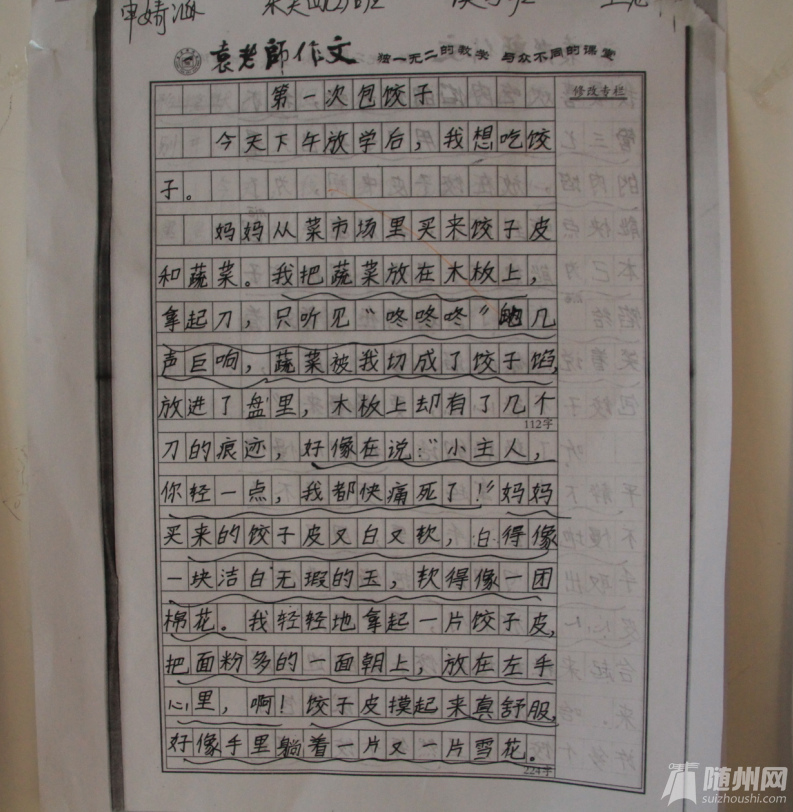 申婧涵
袁老師作文 独一无二的教学 与众不同的课堂
第一次包饺子
修改专栏
今天下午放学后，我想吃饺
子。
妈妈从菜市场里买来饺子皮
和蔬菜。我把蔬菜放在木板上，
拿起刀，只听见“咚咚咚”的几
声巨响，蔬菜被我切成了饺子馅，
放进了盘里，木板上却有了几个
112字
刀的痕迹，好像在说：“小主人，
你轻一点，我都快痛死了！”妈妈
买来的饺子皮又白又软，白得像
一块洁白无瑕的玉，软得像一团
棉花。我轻轻地拿起一片饺子皮，
把面粉多的一面朝上，放在左手
心里，啊！饺子皮摸起来真舒服，
好像手里躺着一片又一片雪花。
224字
随州网
suizhoushi.com